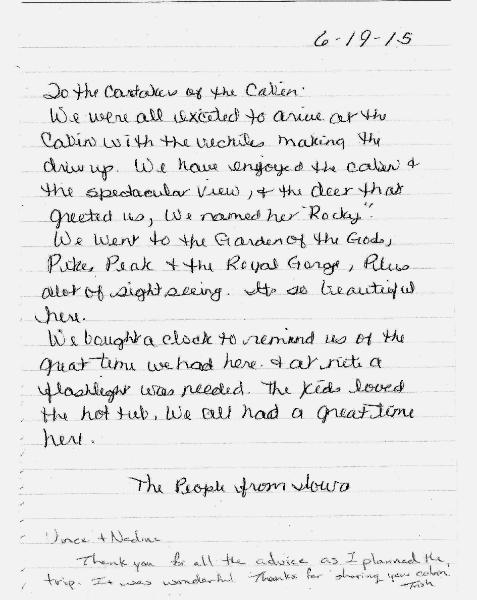 6-19-15
To the Caretaker of the Cabin:
We were all excited to arrive at the
Cabin with the vechiles making the
drive up. We have engoyed the cabin &
the spectacular view, & the deer that
greeted us, We named her "Rocky".
We went to the Garden of the Gods,
Pikes Peak & the Royal Gorge, Plus
alot of sight seeing. Its so beautiful
here.
We bought a clock to remind us of the
great time we had here. & at nite a
flashlight was needed. The kids loved
the hot tub. We all had a great time
here.
The People from Iowa
Vince + Nadine
Thank you for all the advice as I planned the
trip. It was wonderful Thanks for sharing your cabin.
Trish